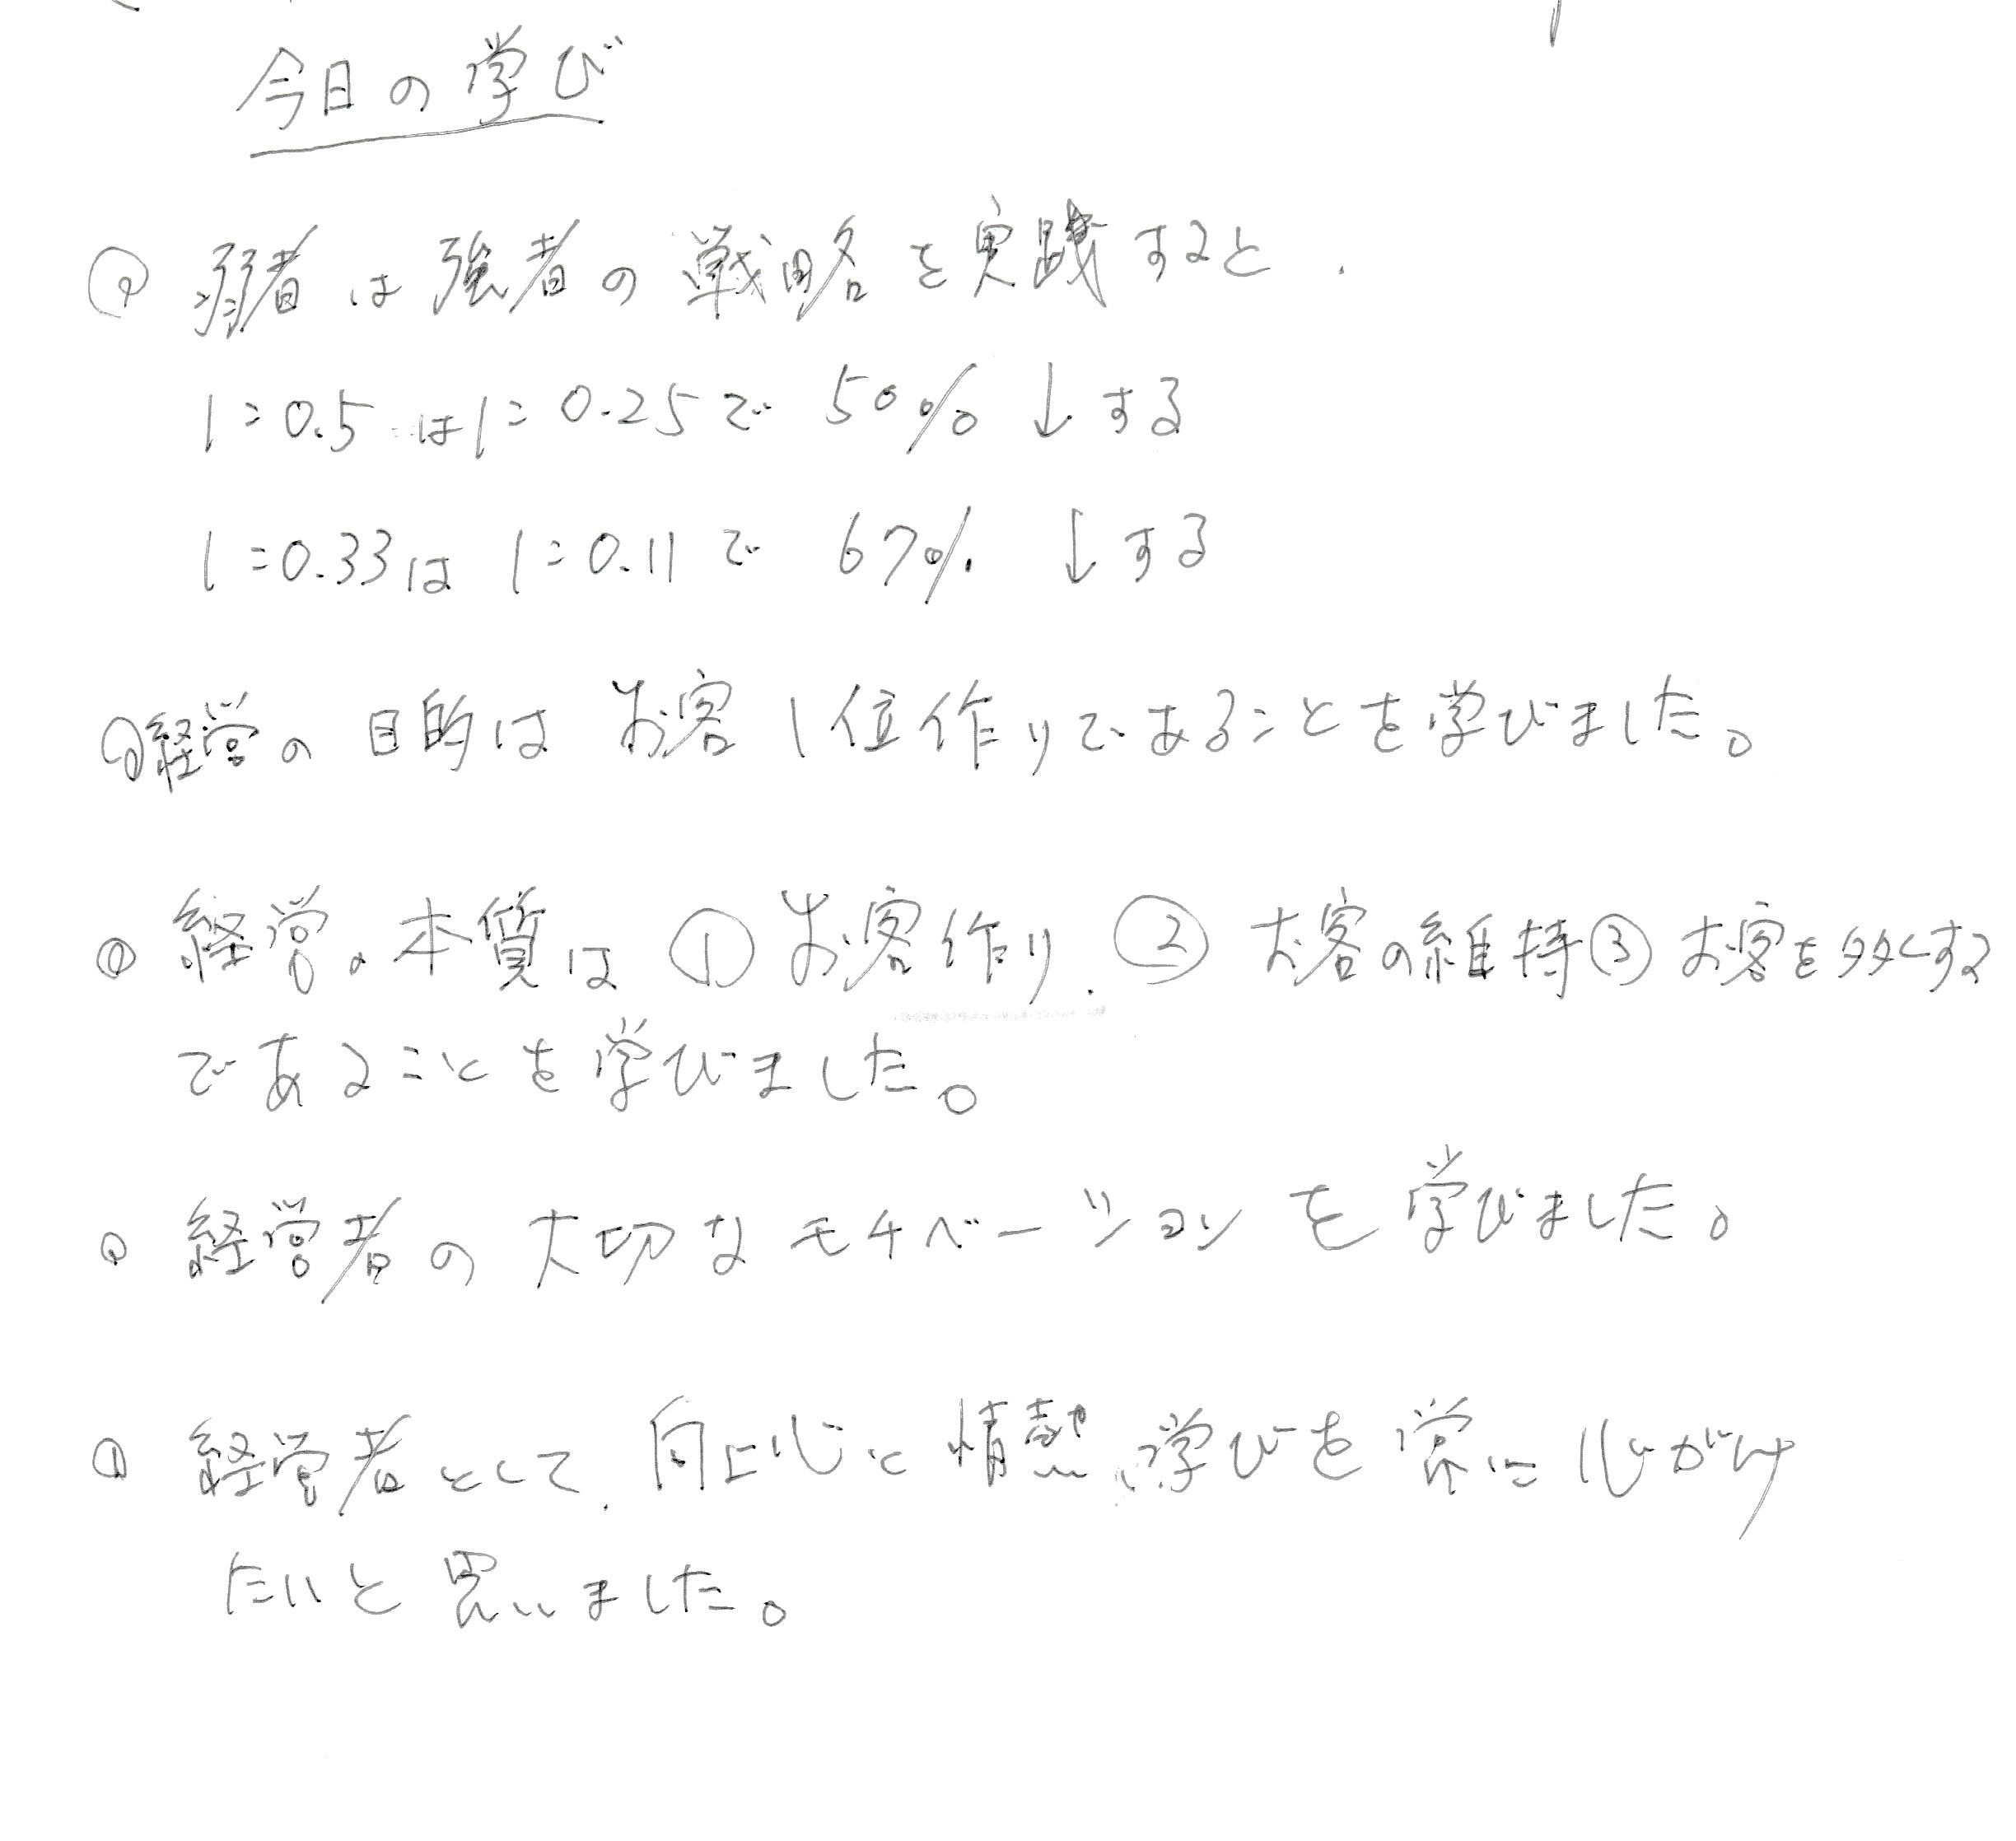 今日の学び
弱者は強者の戦略を実践すると、
1:0.5は1:0.25で 50% ↓する
1:0.33は 1:0.11で 67% ↓する
経営の目的はお客1位作りであることを学びました。
経営の本質は ①お客作り、②お客の維持③お客を多くする
であることを学びました。
経営者の大切なモチベーションを学びました。
経営者として、向上心と情熱、学びを常に心がけ
たいと思いました。